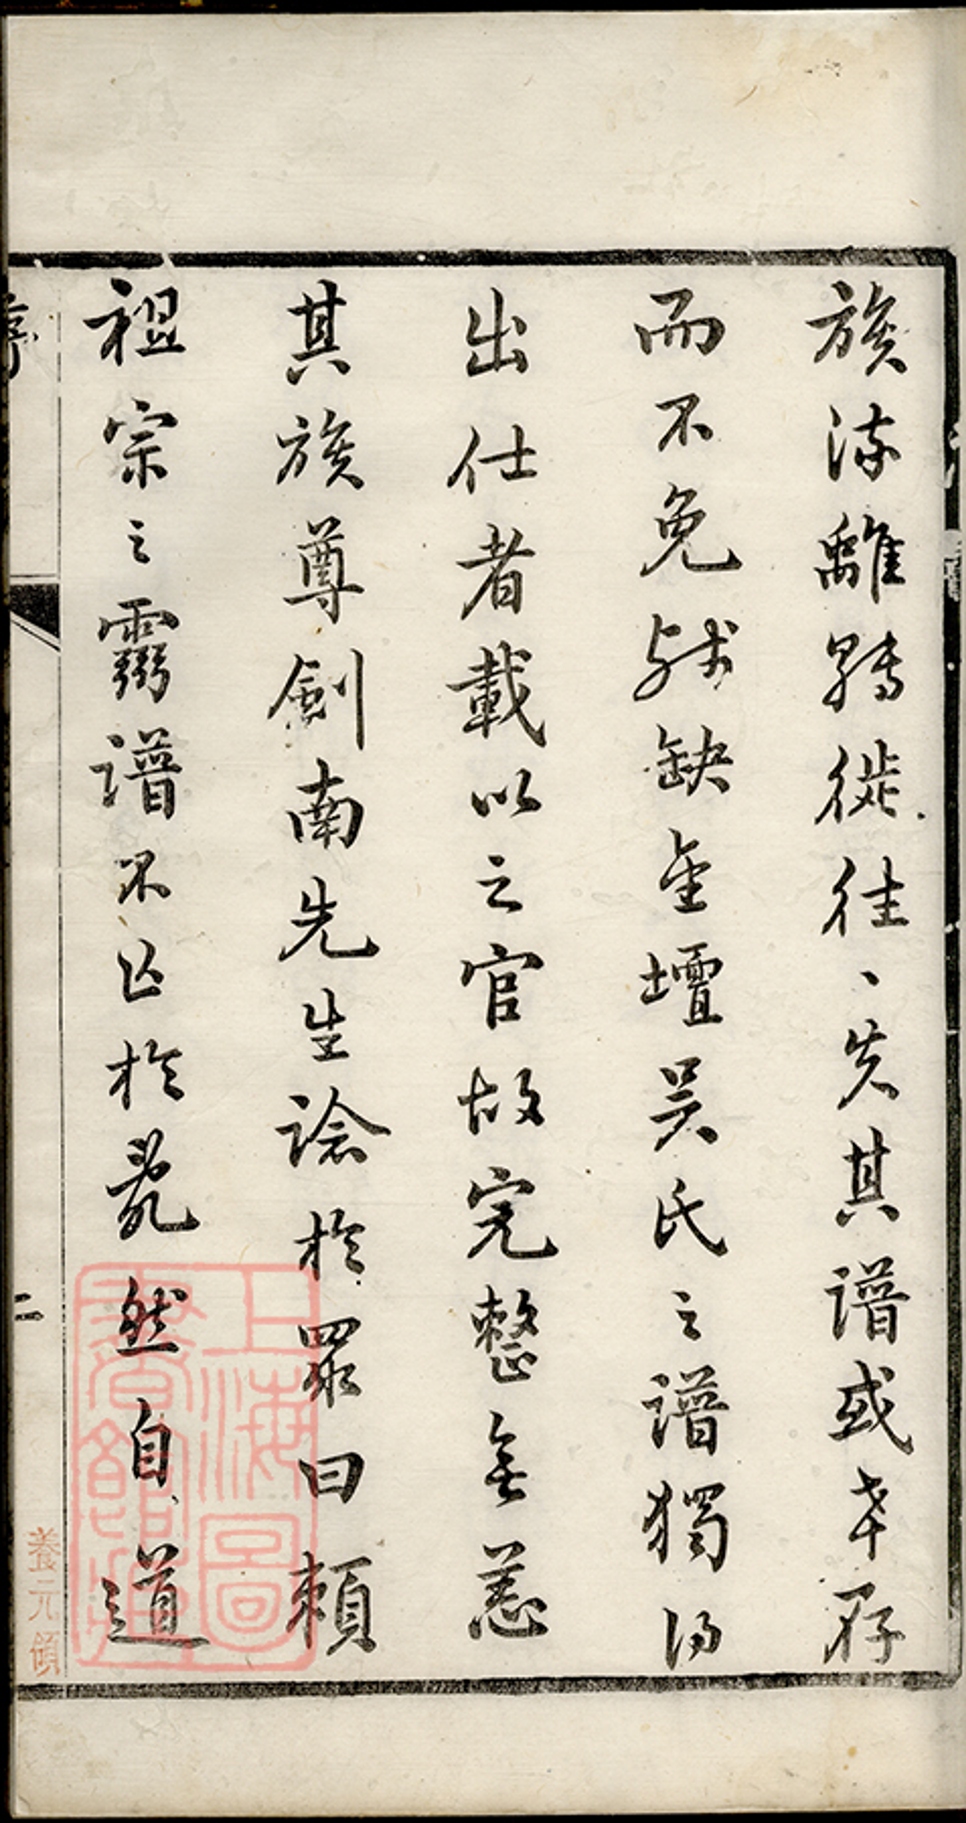 族流離轉徙往〻失其譜或幸存
而不免殘缺金壇吳氏之譜獨得
出仕者載以之官故完整無恙
其族尊劍南先生諗於眾曰賴
祖宗之靈譜不亡於亂然自道
序
二
上海圖書館藏
養元領